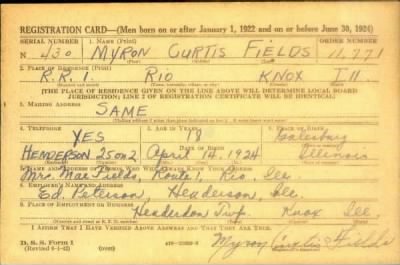 REGISTRATION CARD—(Men born on or after January 1, 1922 and on or before June 30, 1924)
SERIAL NUMBER 1. NAME (Print) ORDER NUMBER
N 430 MYRON CURTIS FIELDS 11,771
(First) (Middle) (Last)
2. PLACE OF RESIDENCE (Print)
R.R. 1. RIO KNOX Ill.
(THE PLACE OF RESIDENCE GIVEN ON THE LINE ABOVE WILL DETERMINE LOCAL BOARD
JURISDICTION; LINE 2 OF REGISTRATION CERTIFICATE WILL BE IDENTICAL)
3. MAILING ADDRESS
SAME
4. TELEPHONE 5. AGE IN YEARS 6. PLACE OF BIRTH
YES 18 Galesburg
HENDERSON 25 on 2 April 14, 1924 Illinois
7. NAME AND ADDRESS OF PERSON WHO WILL ALWAYS KNOW YOUR ADDRESS
Mrs. Mae Fields, Route 1, Rio, Ill.
8. EMPLOYER'S NAME AND ADDRESS
Ed. Peterson, Henderson, Ill.
9. PLACE OF EMPLOYMENT OR BUSINESS
Henderson Twp. Knox Ill.
I AFFIRM THAT I HAVE VERIFIED ABOVE ANSWERS AND THAT THEY ARE TRUE.
D. S. S. Form 1
(Revised 6-1-42) (over) Myron Curtis Fields